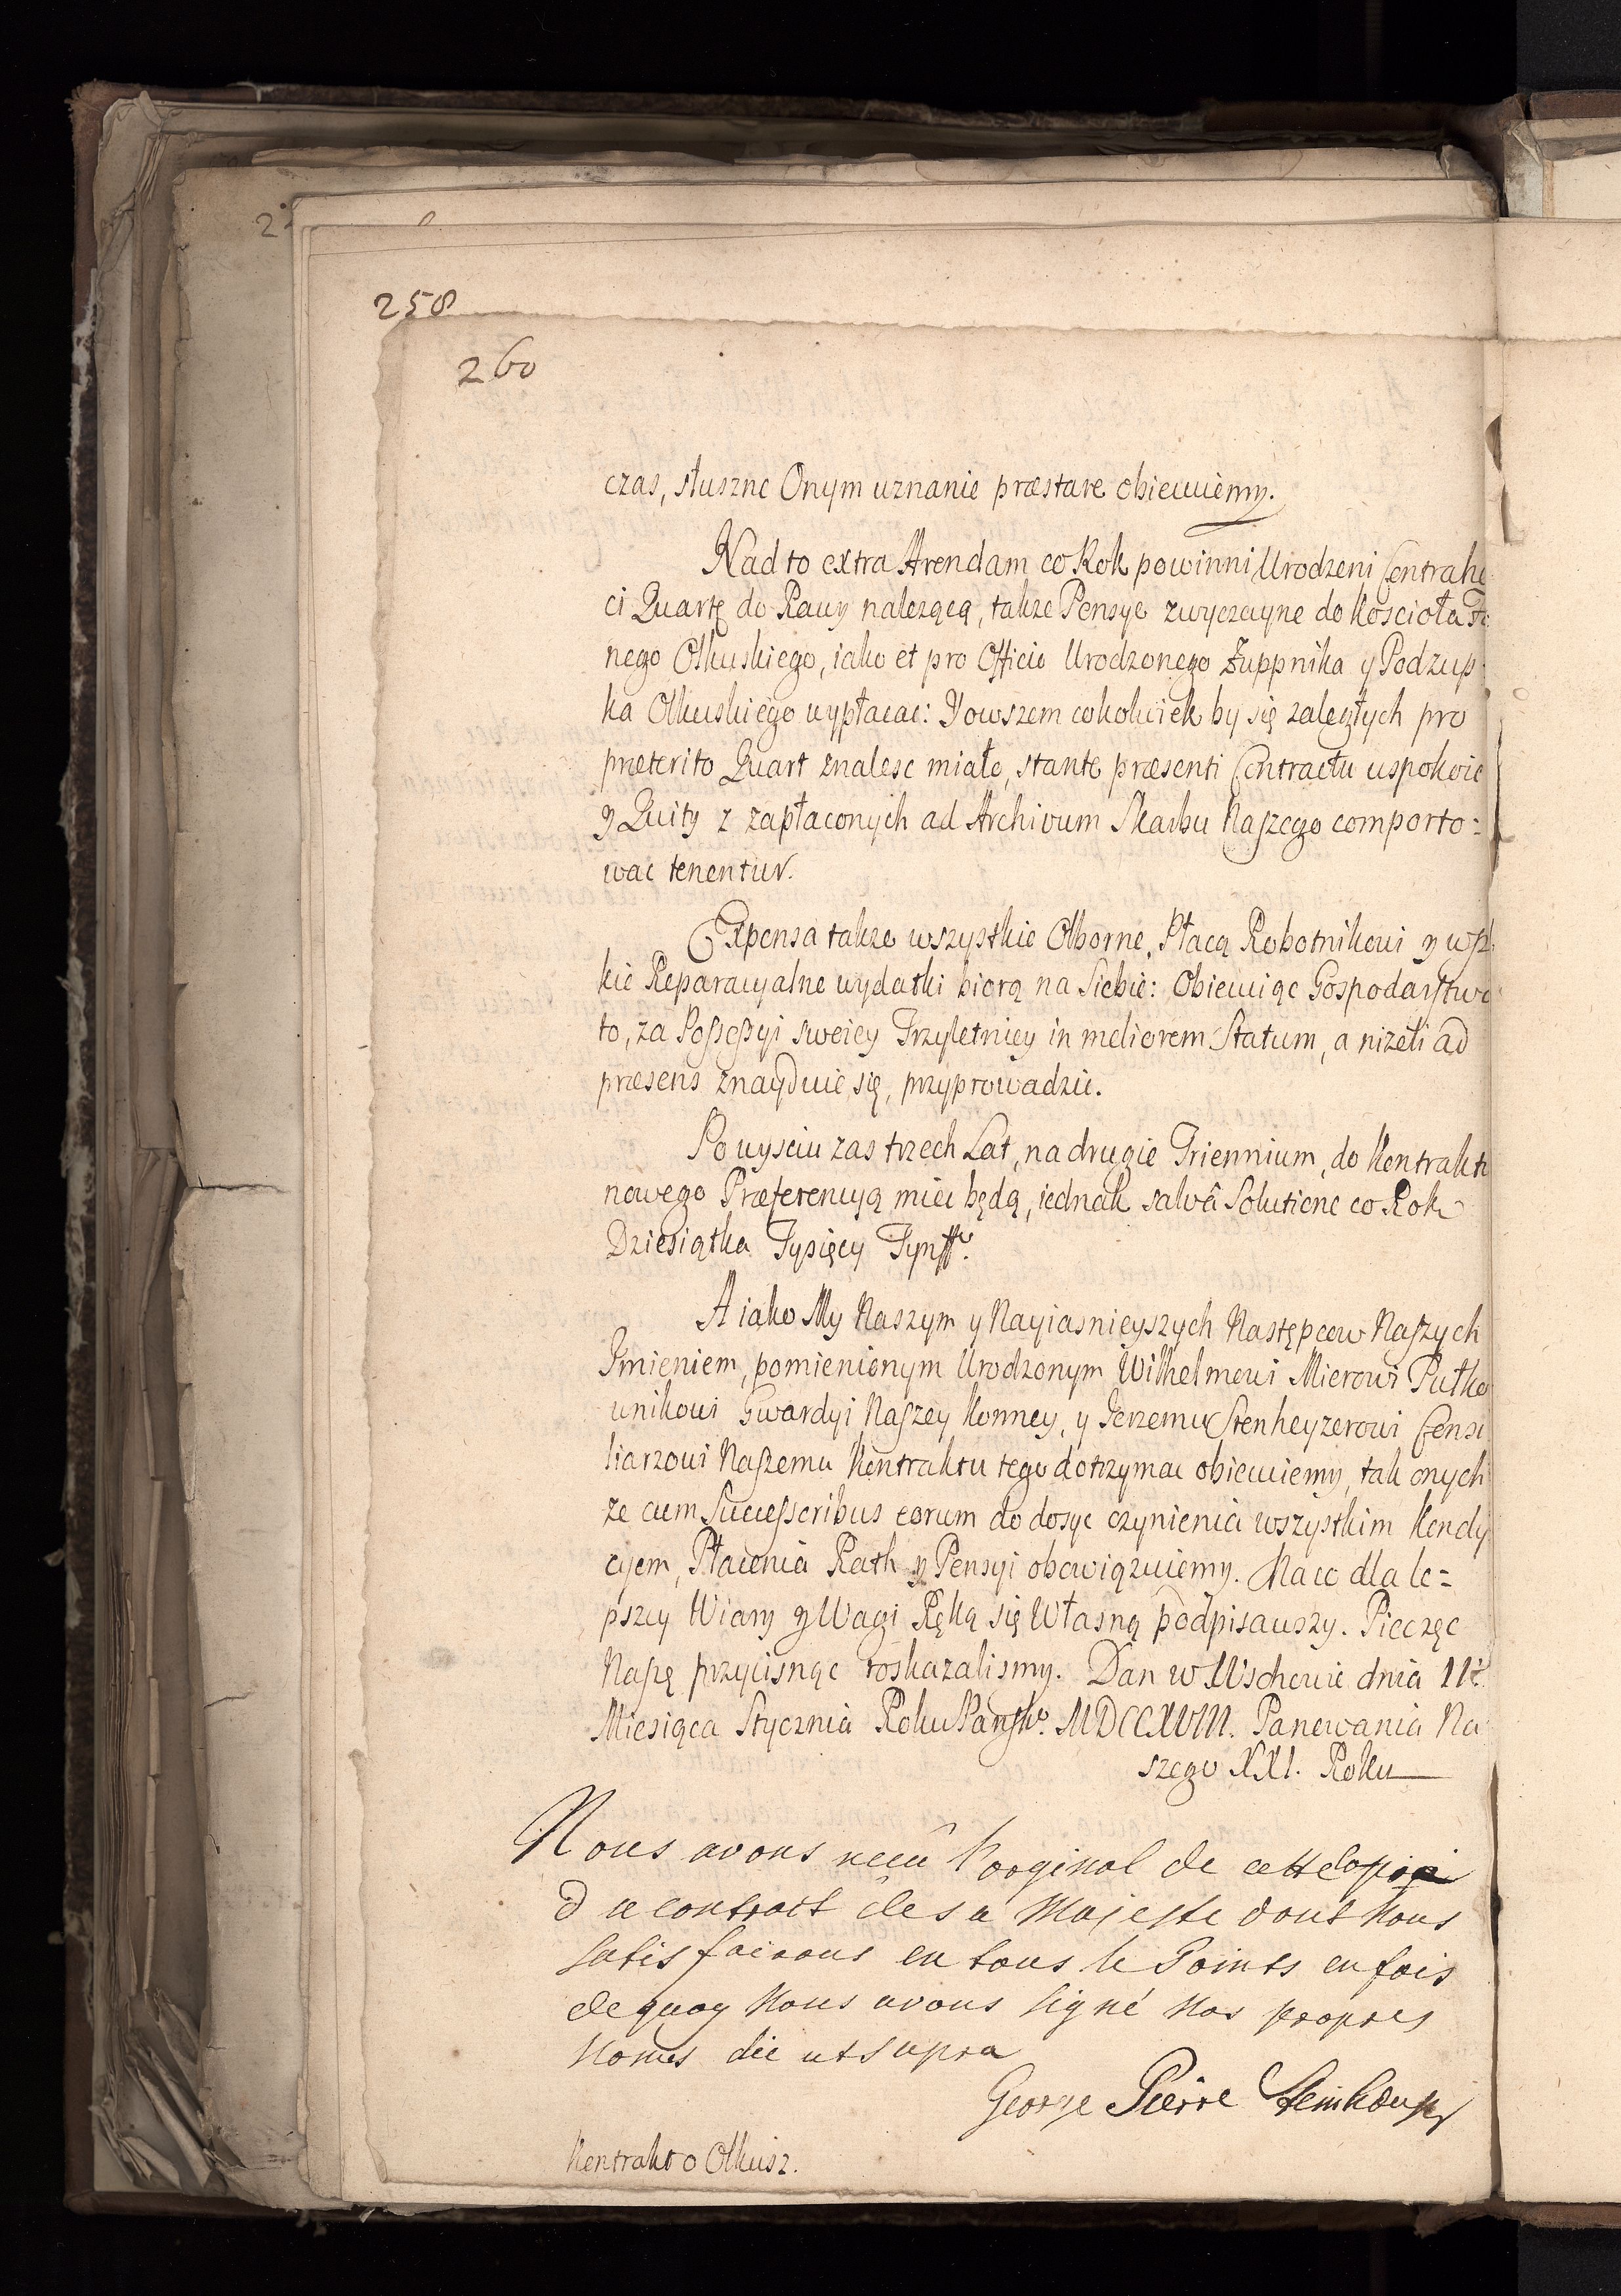 258
260
czas, słuszne Onym uznanie præstare obiecuiemy.
Nad to extra Arendam co Rok powinni Urodzeni Contrahe
ci Quartę do Rawy nalezącą, takze Pensye zwyczayne do Koscioła Fa
nego Olkuskiego, iako et pro Officio Urodzonego Zuppnika y Podzup
ka Olkuskiego wypłacac: Y owszem cokolwiek by się zaległych pro
præterito Quart znalesc miało, stante præsenti Contractu uspokoic
y Quity z zapłaconych ad Archivum Skarbu Naszego comporto=
wac tenentur.
Expensa takze wszystkie Olborne, Płacą Robotnikowi y wsz
kie Reparacyalne wydatki biorą na Siebie: Obiecuiąc Gospodarstwo
to, za Possessyi swoiey Trzyletniey in meliorem Statum, a nizeli ad
præsens znayduie się, przyprowadzic.
Po wysciu zas trzech Lat, na drugie Triennium, do Kontraktu
nowego Præferencyą miec będą, iednak salvâ Solutione co Rok
Dziesiątka Tysięcy Tynffw.
A iako My Naszym y Nayiasnieyszych Następcow Naszych
Imieniem, pomienionym Urodzonym Wilhelmowi Mierowi Pułko
wnikowi Gwardyi Naszey Konney, y Jerzemu Stenheyzerowi Consi
liarzowi Naszemu Kontraktu tego dotrzymac obiecuiemy, tak onych
ze cum Successoribus eorum do dosyc czynienia wszystkim Kondy
cyom, Płacenia Rath y Pensyi obowiązuiemy. Na co dla le=
pszey Wiary y Wagi Ręką się Własną podpisawszy. Pieczęc
Naszę przycisnąc roskazalismy. Dan w Wschowie dnia
Miesiąca Stycznia Roku Pansko. MDCCXVIII. Panowania Na
szego XXI. Roku
Nous avons recu l'orginal de cette Copie
d ce contract de sa Majeste dont nous
satisfairons en tous le Points en fois
de quoy nous avons signé nos propres
Nomes die ut supra
George Pierre
Kontrakt o Olkusz.